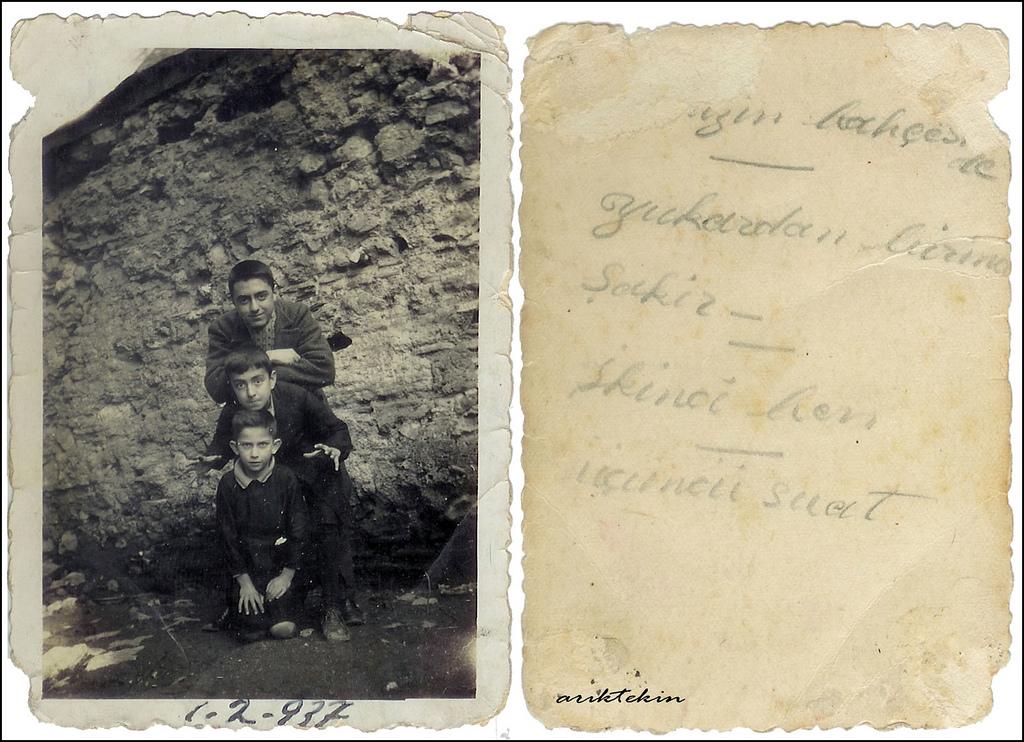 1-2-937
bahçesin
de
yukardan birinci
Şakir -
ikinci ben
üçüncü suat
arıktekin